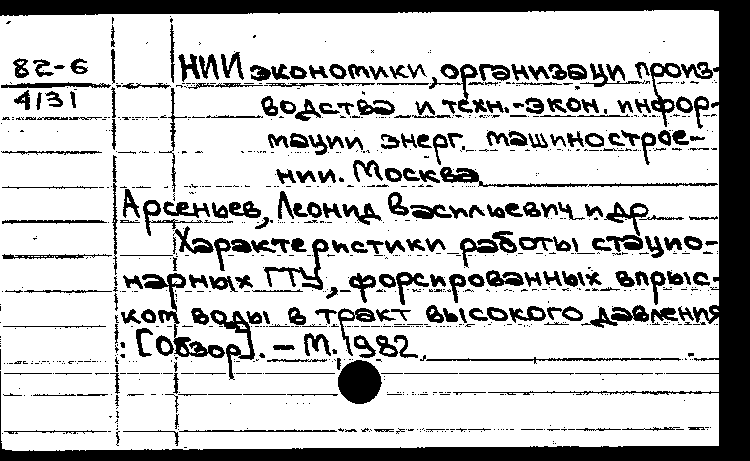 82-6
4131
НИИ экономики, организаци произ-
водства и техн.-экон. инфор-
мации энерг. машинострое-
нии. Москва.
Арсеньев, Леонид Васильевич и др.
Характеристики работы стацио-
нарных ГТУ, форсированных впрыс-
ком воды в тракт высокого давления
: [Обзор]. - М., 1982.